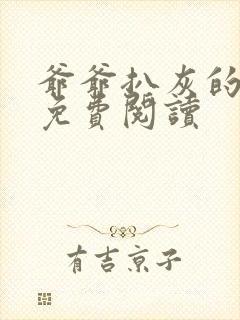 爺爺扒灰的
免費閱讀
有吉京子